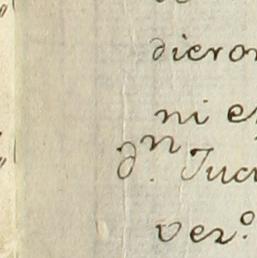 dieron
ni e
dⁿ. Jua
ver.º